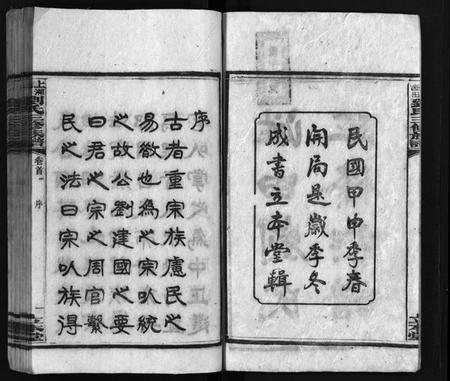 民國甲申季春
開局是歲季冬
成書立本堂輯
序
古者重宗族慮民之
易散也為之宗以統
之故公劉建國之要
曰君之宗之周官繫
民之法曰宗以族得
卷首
序